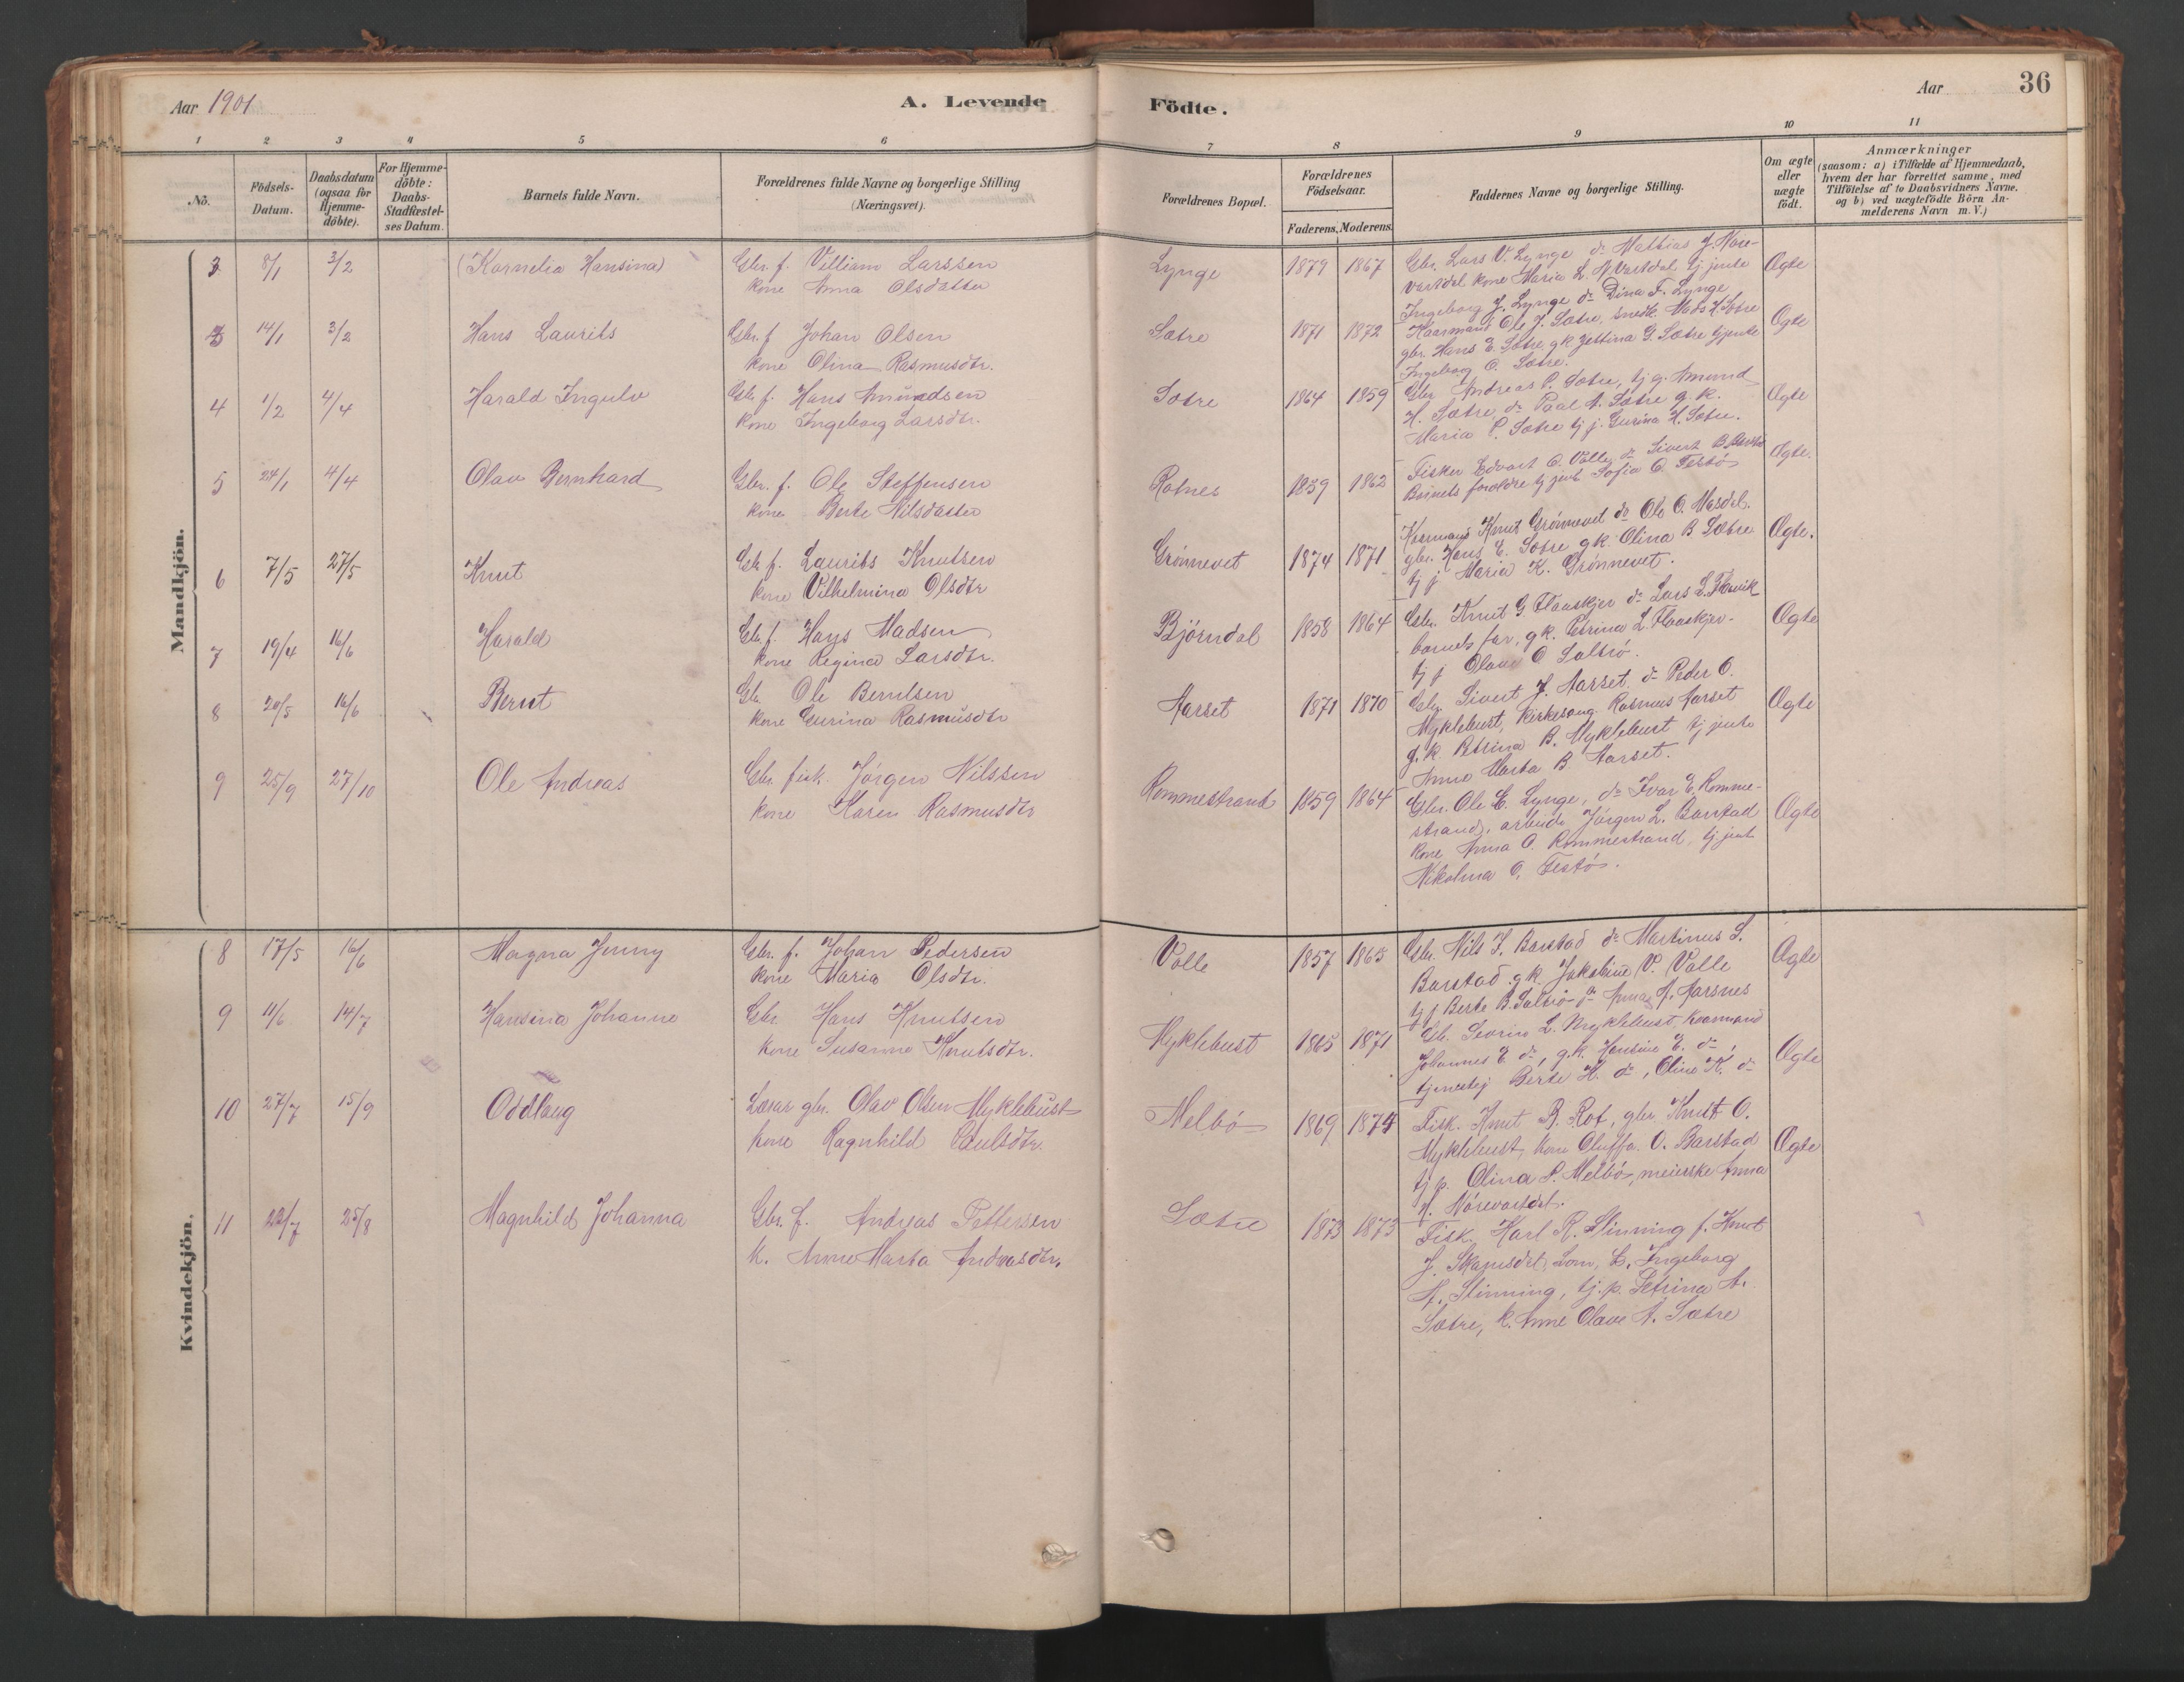 Aar 1901
A. Levende Födte.
Aar
36
1 2 3 4 5 6 7 8 9 10 11
No.
Födsels-Datum.
Daabsdatum (ogsaa for Hjemme-döbte).
For Hjemme-döbte: Daabs-Stadfæstel-ses Datum.
Barnets fulde Navn.
Forældrenes fulde Navne og borgerlige Stilling (Næringsvei).
Forældrenes Bopæl.
Forældrenes Födselsaar.
Faderens. Moderens.
Faddernes Navne og borgerlige Stilling.
Om ægte eller uægte födt.
Anmærkninger
(saasom: a) i Tilfælde af Hjemmedaab,
hvem der har forrettet samme, med
Tilföielse af to Daabsvidners Navne,
og b) ved uægtefödte Börn An-
melderens Navn m. V.)
Mandkjön.
3 8/1 3/2 (Kornelia Hansina) Gbr. f. Villiam Larssen
kone Anna Olsdatter
Lynge 1879 1867 Gbr. Lars V. Lynge do Mathias J. Nore-
vartdal kone Maria L. N Vartdal tj jente
Ingeborg J. Lynge do Dina F. Lynge
Ægte
3 14/1 3/2 Hans Laurits Gbr. f Johan Olsen
kone Olina Rasmusdtr.
Sætre 1871 1872 Kaarmand Ole J. Sætre, snedk. Mads H. Sætre
gbr. Hans E. Sætre, gk Jettina G. Sætre tj jente
Ingeborg O. Sætre.
Ægte
4 1/2 4/4 Harald Ingulv Gbr f. Hans Amundsen
kone Ingeborg Larsdtr.
Sætre 1864 1859 Gbr Andreas P. Sætre, tj g. Amund
H. Sætre, do Paal A. Sætre g. k.
Maria P. Sætre tj j. Gurina H. Sætre.
Ægte
5 24/1 4/4 Olav Bernhard Gbr. f. Ole Steffensen
kone Berte Nilsdatter
Rotnes 1859 1862 Fisker Edvart O. Valle do Sivert B. Barstad
Barnets forældre tj jent Sofia O. Festö
Ægte.
6 7/5 27/5 Knut Gbr f. Laurits Knutsen
kone Vilhelmina Olsdtr
Grönnevet 1874 1871 Kaarmand Knut Grönnevet do Ole O. Masdal.
gbr. Hans E. Sætre gk Olina B Sætre
tj j Maria K. Grönnevet.
Ægte.
7 19/4 16/6 Harald Gbr f. Hans Madsen
kone Regina Larsdtr.
Björndal 1858 1864 Gbr. Knut G Flaaskjer do Lars L. Flavik
barnets far, gk. Petrina L. Flaaskjer
tj j Olave O Saltrö.
Ægte
8 20/5 16/6 Bernt Gbr. Ole Berntsen
kone Gurina Rasmusdtr
Aarset 1871 1870 Gbr. Sivert J. Aarset, do Peder O.
Myklebust, Kirkesang. Rasmus Aarset
g.k. Petrina B. Myklebust tj jente
Anne Marta B Aarset.
Ægte
9 25/9 27/10 Ole Andreas Gbr. fisk. Jörgen Nilssen
kone Karen Rasmusdtr
Rommestrand 1859 1864 Gbr. Ole E. Lynge, do Ivar E. Romme-
strand, arbeider Jörgen L. Barstad
kone Anna O. Rommestrand, tj. jent
Nikolina O. Festö.
Ægte
Kvindekjön.
8 17/5 16/6 Magna Jenny Gbr. f. Johan Pedersen
kone Maria Olsdtr.
Valle 1857 1865 Gbr Nils J. Barstad do Martinus S.
Barstad g.k. Jakobine V. Valle
tj j Berte B. Saltrö, do Anna A. Aarsnes
Ægte
9 11/6 14/7 Hansina Johanne Gbr. Hans Knutsen
kone Susanne Knutsdtr.
Myklebust 1865 1871 Gbr. Severin L. Myklebust, kaarmand
Johannes E. do, g.k. Hansine E. do,
tjenestej Berte H. do, Oline K. do
Ægte
10 27/7 15/9 Oddlaug Lærar gbr. Olav Olsen Myklebust
kone Ragnhild Paulsdtr.
Melbö 1869 1874 Fisk. Knut B. Rot, gbr Knut O.
Myklebust, kone Oluffa O. Barstad
tj p. Olina P. Melbö, meierske Anna
N. Nörevartdal.
Ægte
11 22/7 25/8 Magnhild Johanna Gbr. f. Andreas Pettersen
k. Anne Marta Andreasdtr.
Sætre 1873 1873 Fisk. Karl R. Slinning f. Knut
J. Skansdal, Lom, E. Ingeborg
A. Slinning, tj. p. Petrina A.
Sætre, k. Anne Olave A. Sætre